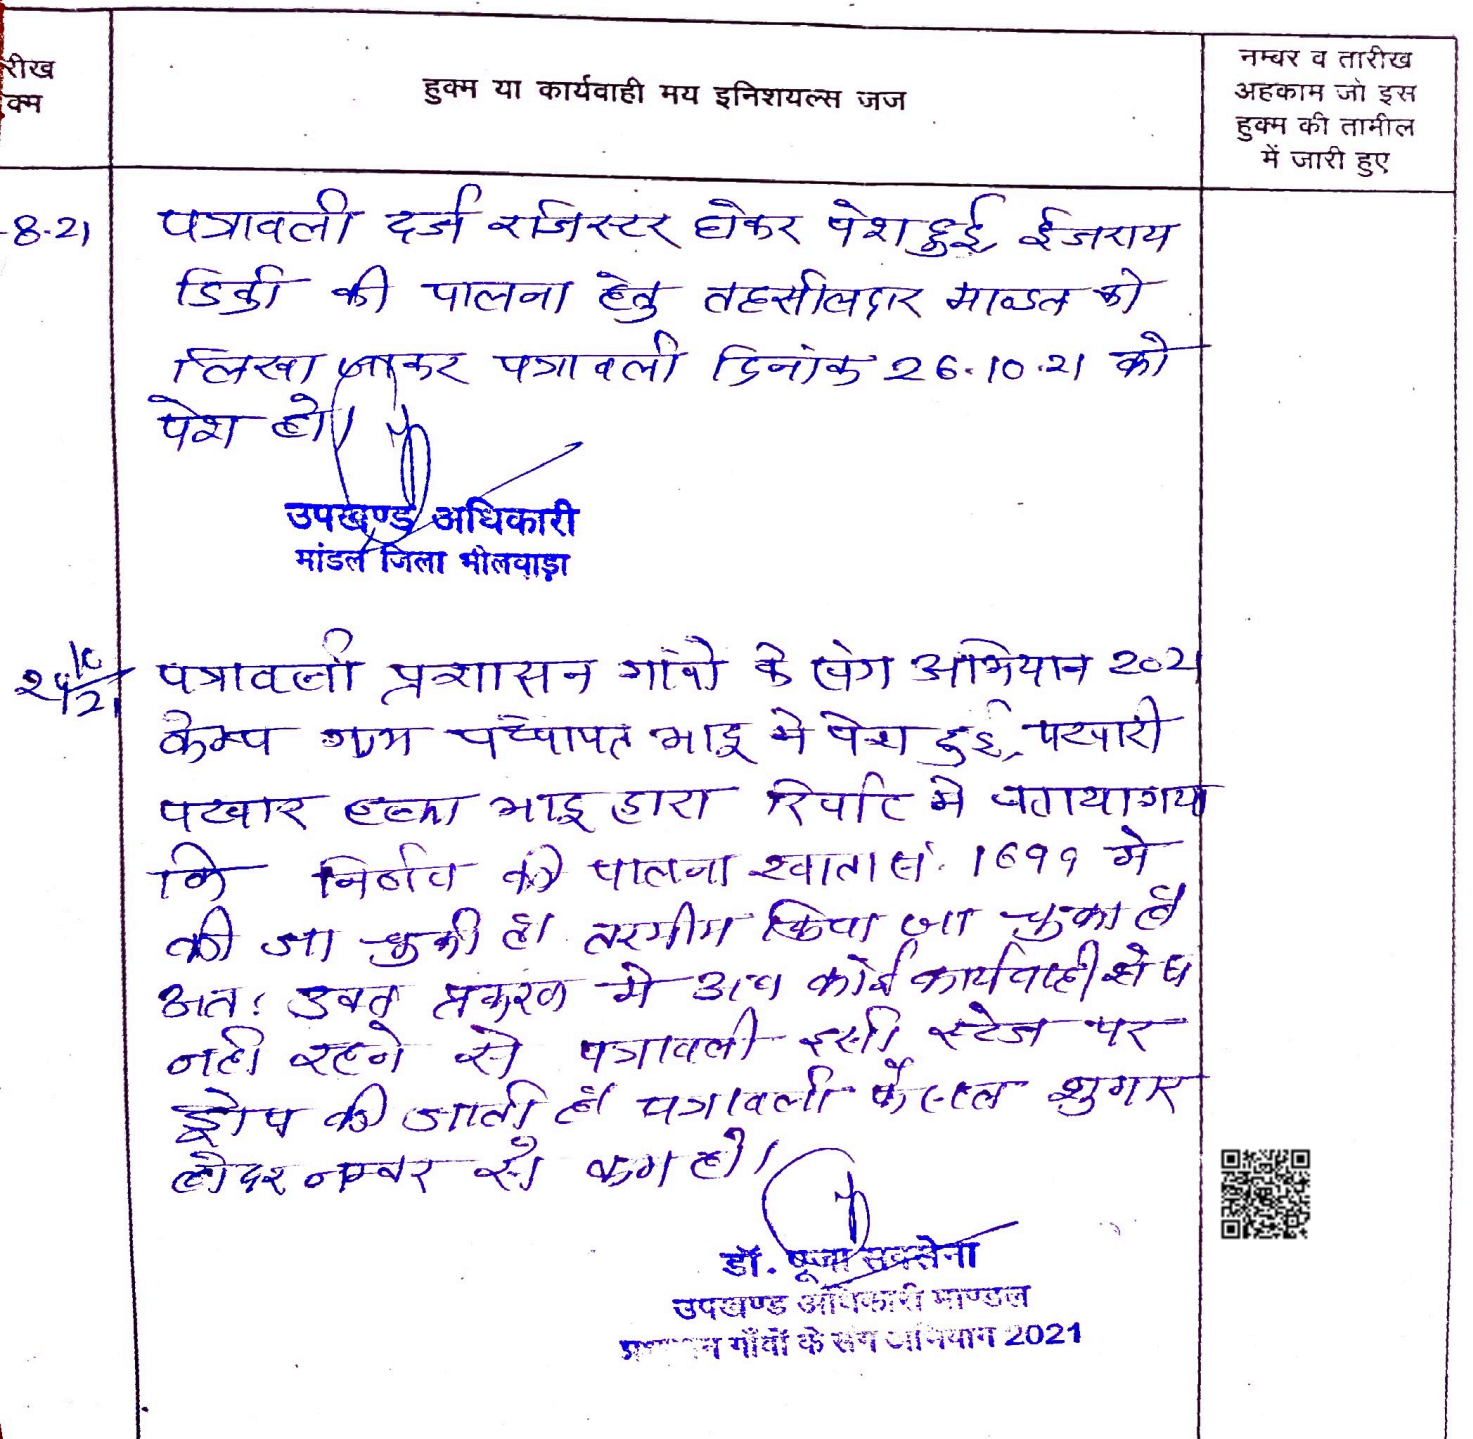 रीख
क्म
हुक्म या कार्यवाही मय इनिशयल्स जज
नम्बर व तारीख
अहकाम जो इस
हुक्म की तामील
में जारी हुए
-8-21
पत्रावली दर्ज रजिस्टर होकर पेश हुई, ईजराय
डिक्री की पालना हेतु तहसीलदार माण्डल को
लिखा जाकर पत्रावली दिनांक 26.10.21 को
पेश हो।
उपखण्ड अधिकारी
मांडल जिला भीलवाड़ा
पत्रावली प्रशासन गांवो के संग अभियान 2021
केम्प ग्राम पंचायत भादू मे पेश हुई, पटवारी
पटवार हल्का भादू द्वारा रिर्पोट मे बताया गया
कि निर्णय की पालना खाता सं. 1699 मे
की जा चुकी है। तरमीम किया जा चुका है
अतः उक्त प्रकरण मे अब कोई कार्यवाही शेष
नही रहने से पत्रावली इसी स्टेज पर
ड्रोप की जाती है पत्रावली फैसल शुमार
होकर नम्बर से कम हो।
डॉ. पूजा सक्सेना
उपखण्ड अधिकारी माण्डल
प्रशासन गाँवों के संग अभियान 2021